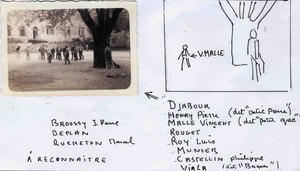 V. MALLE
DJABOUR
HENRY Pierre (dit "petit Pierre")
MALLE Vincent (dit "petit
ROUGET
ROY Luis
MUNIER
CASTELLIN philippe
VIALA (dit
BROUSSY
DEPLAN
RUCHETON
A RECONNAITRE